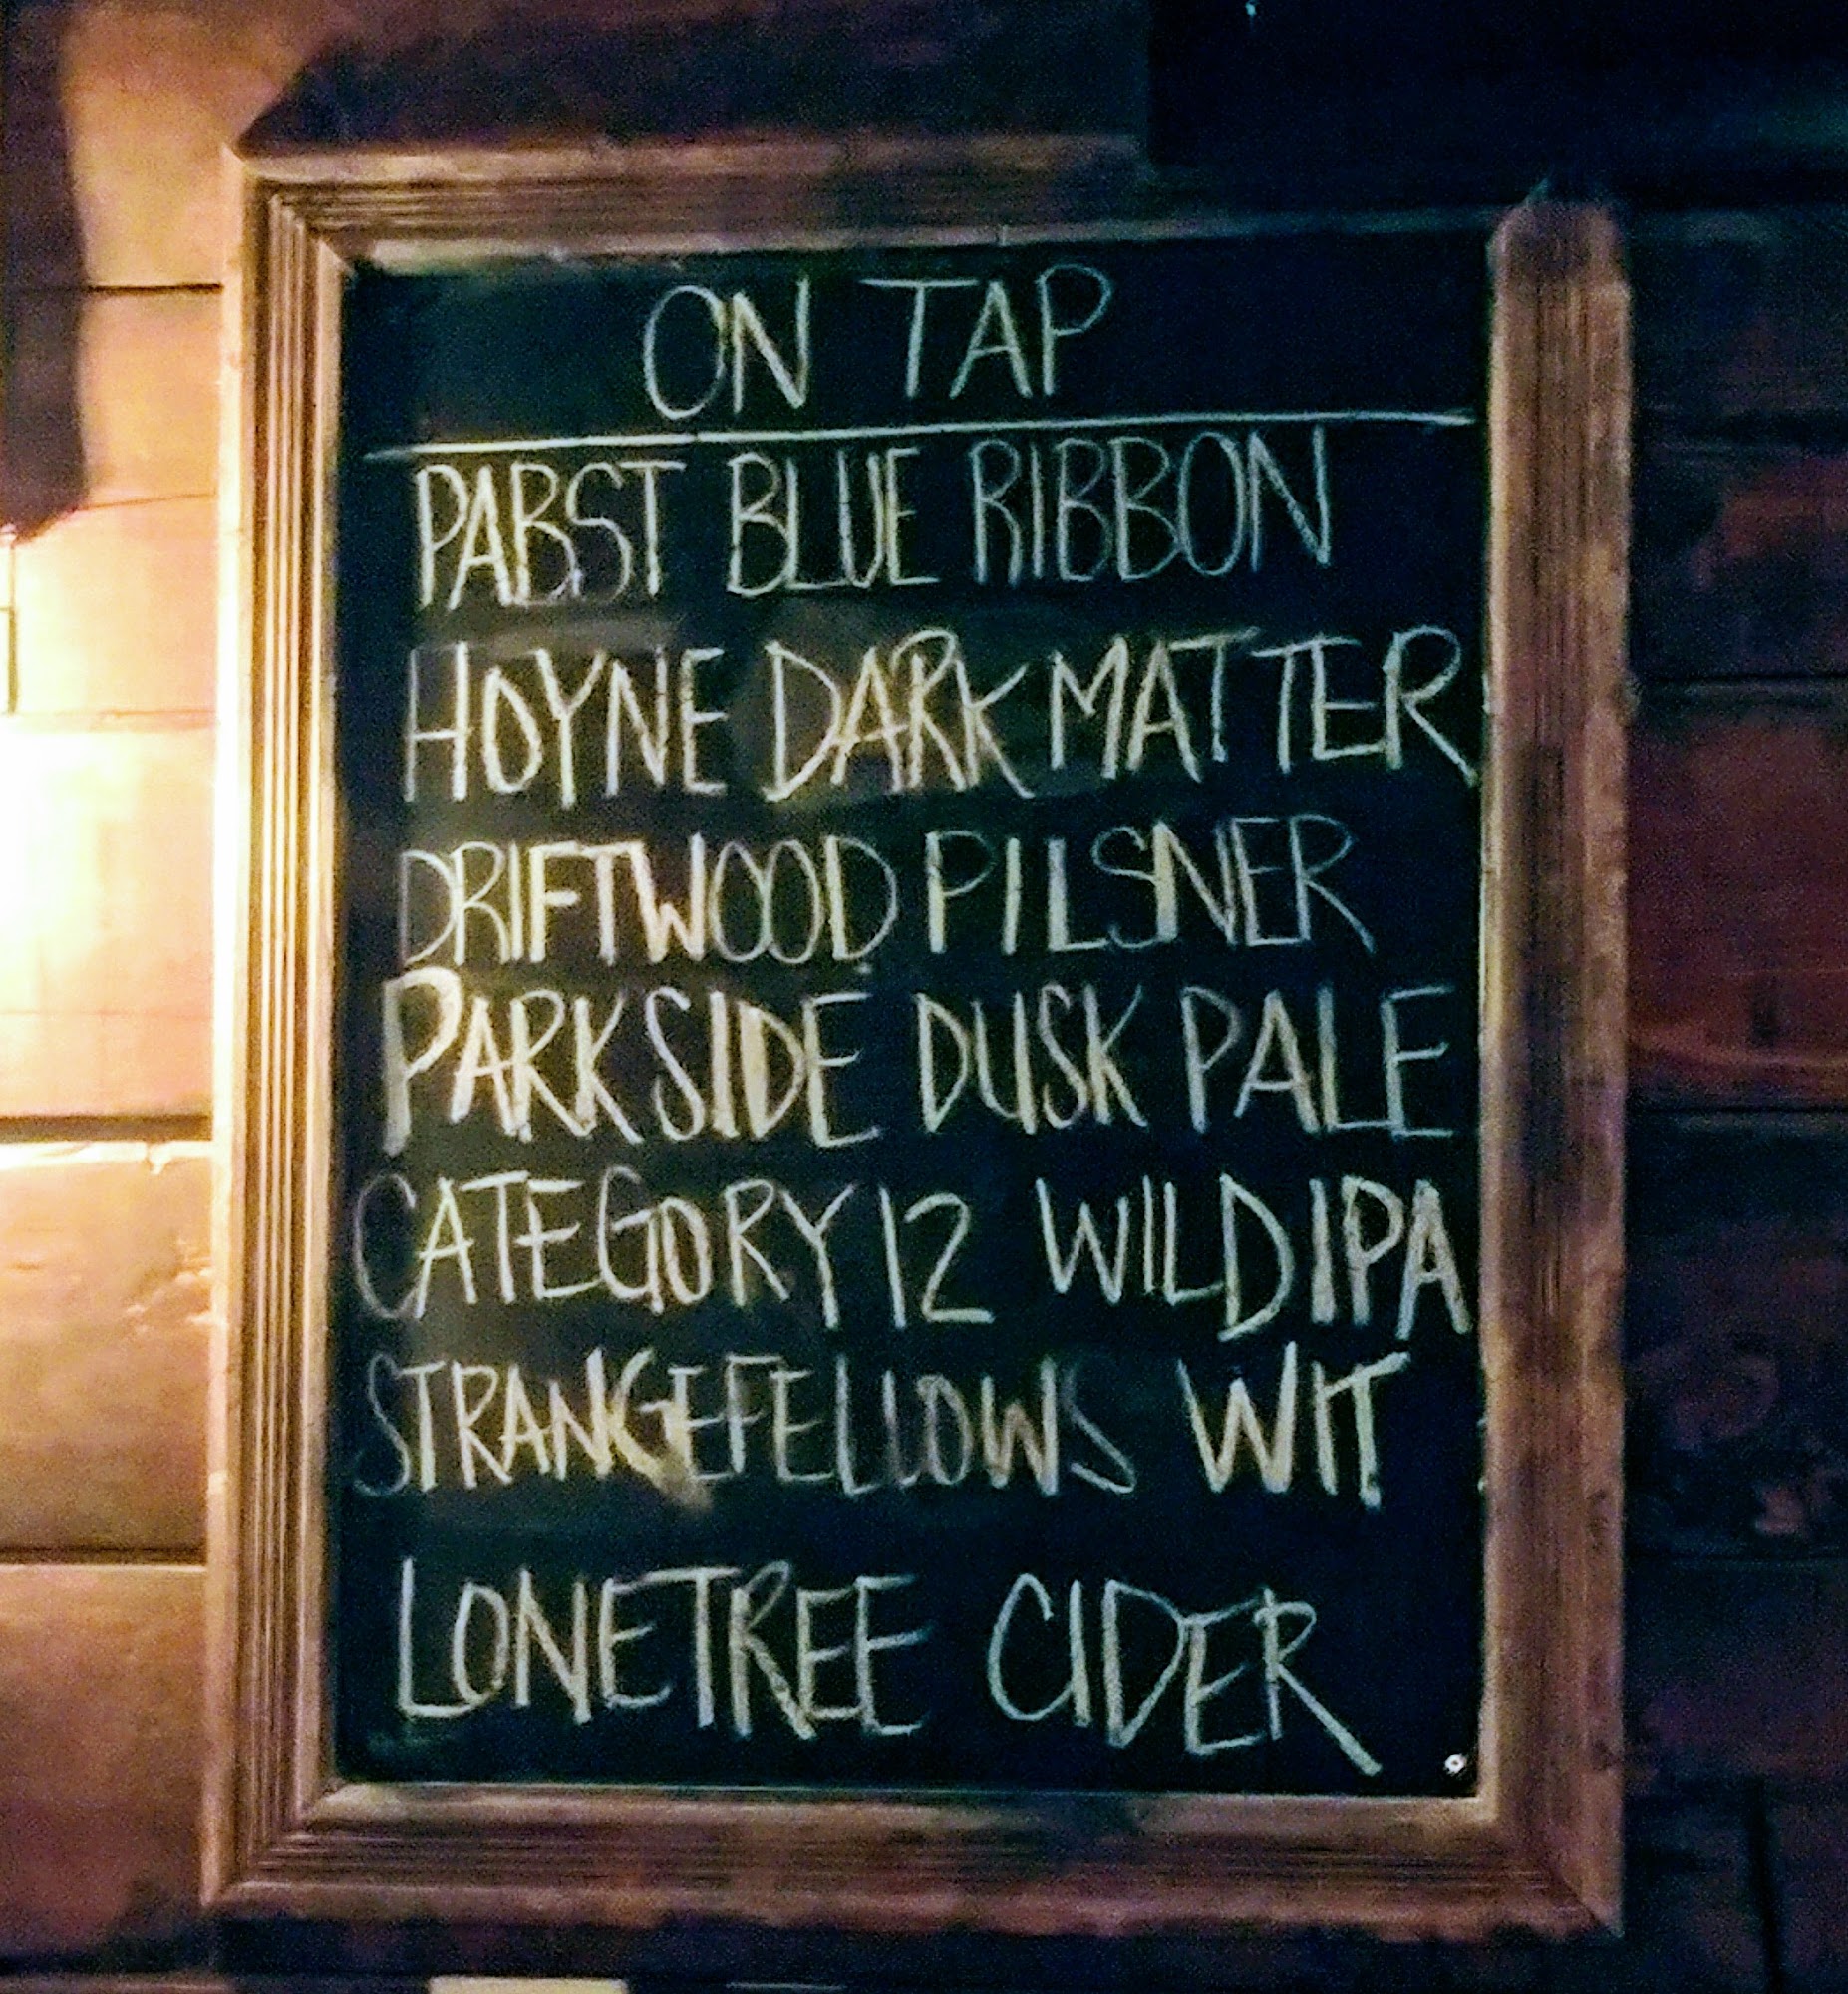 ON TAP
PABST BLUE RIBBON
HOYNE DARK MATTER
DRIFTWOOD PILSNER
PARKSIDE DUSK PALE
CATEGORY 12 WILD IPA
STRANGEFELLOWS WIT
LONETREE CIDER